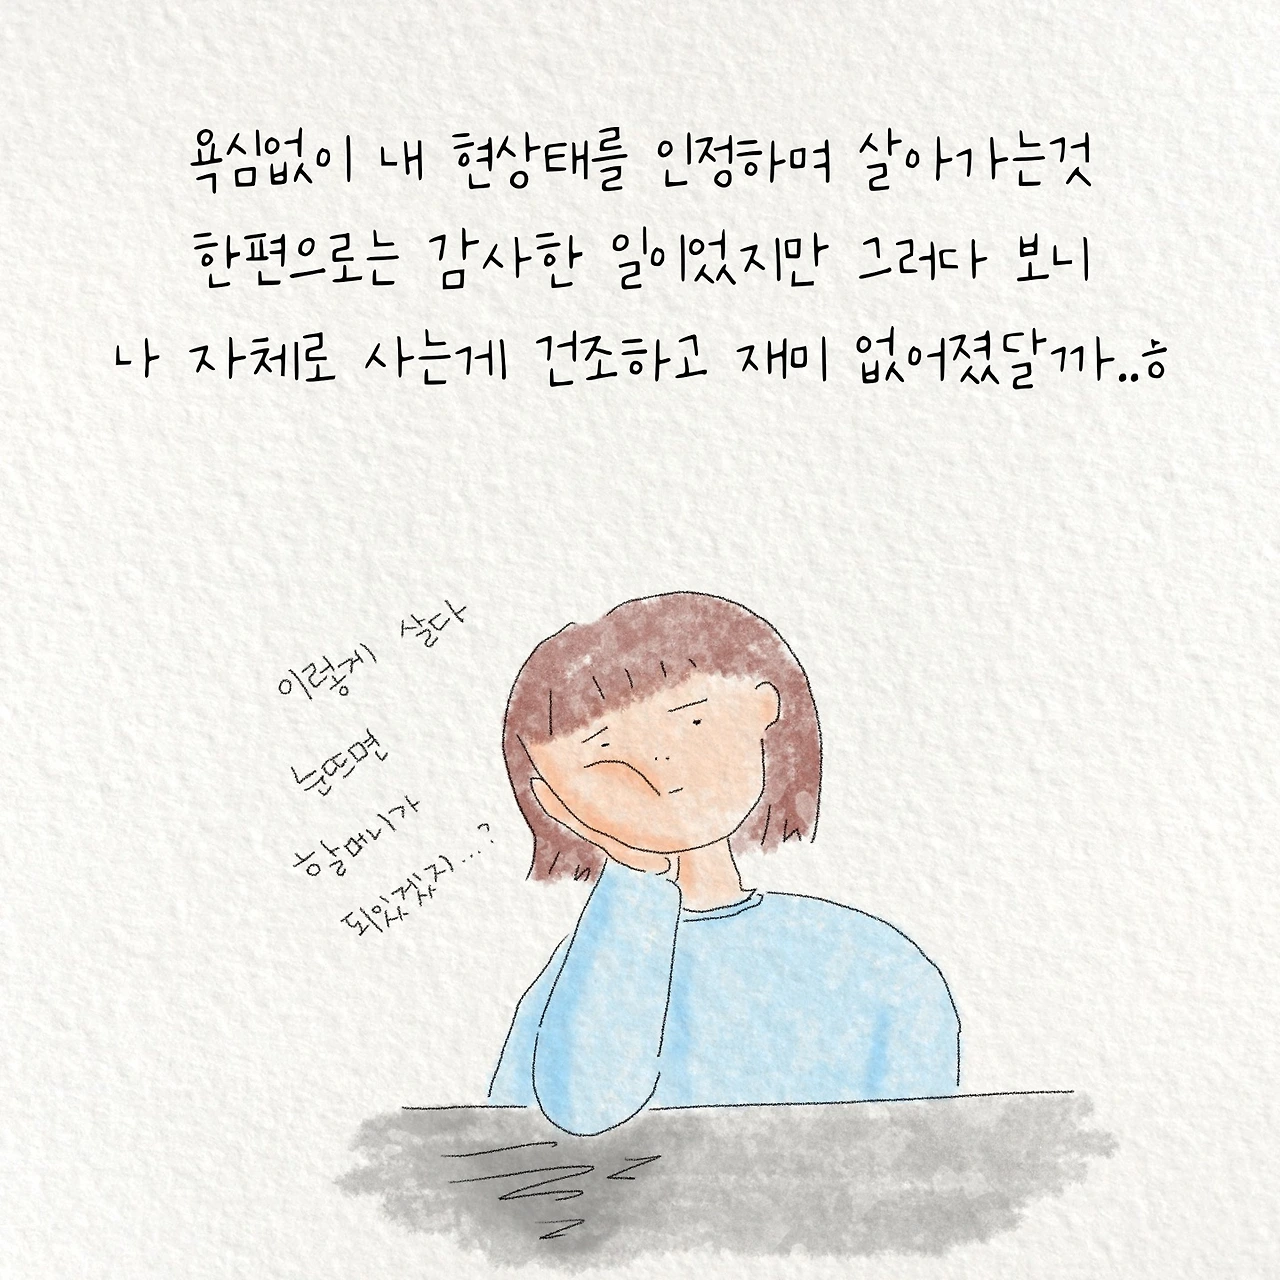 욕심없이 내 현상태를 인정하며 살아가는것
한편으로는 감사한 일이었지만 그러다 보니
나 자체로 사는게 건조하고 재미 없어졌달까..ㅎ
이렇게 살다
눈뜨면
할머니가
되있겠지...?